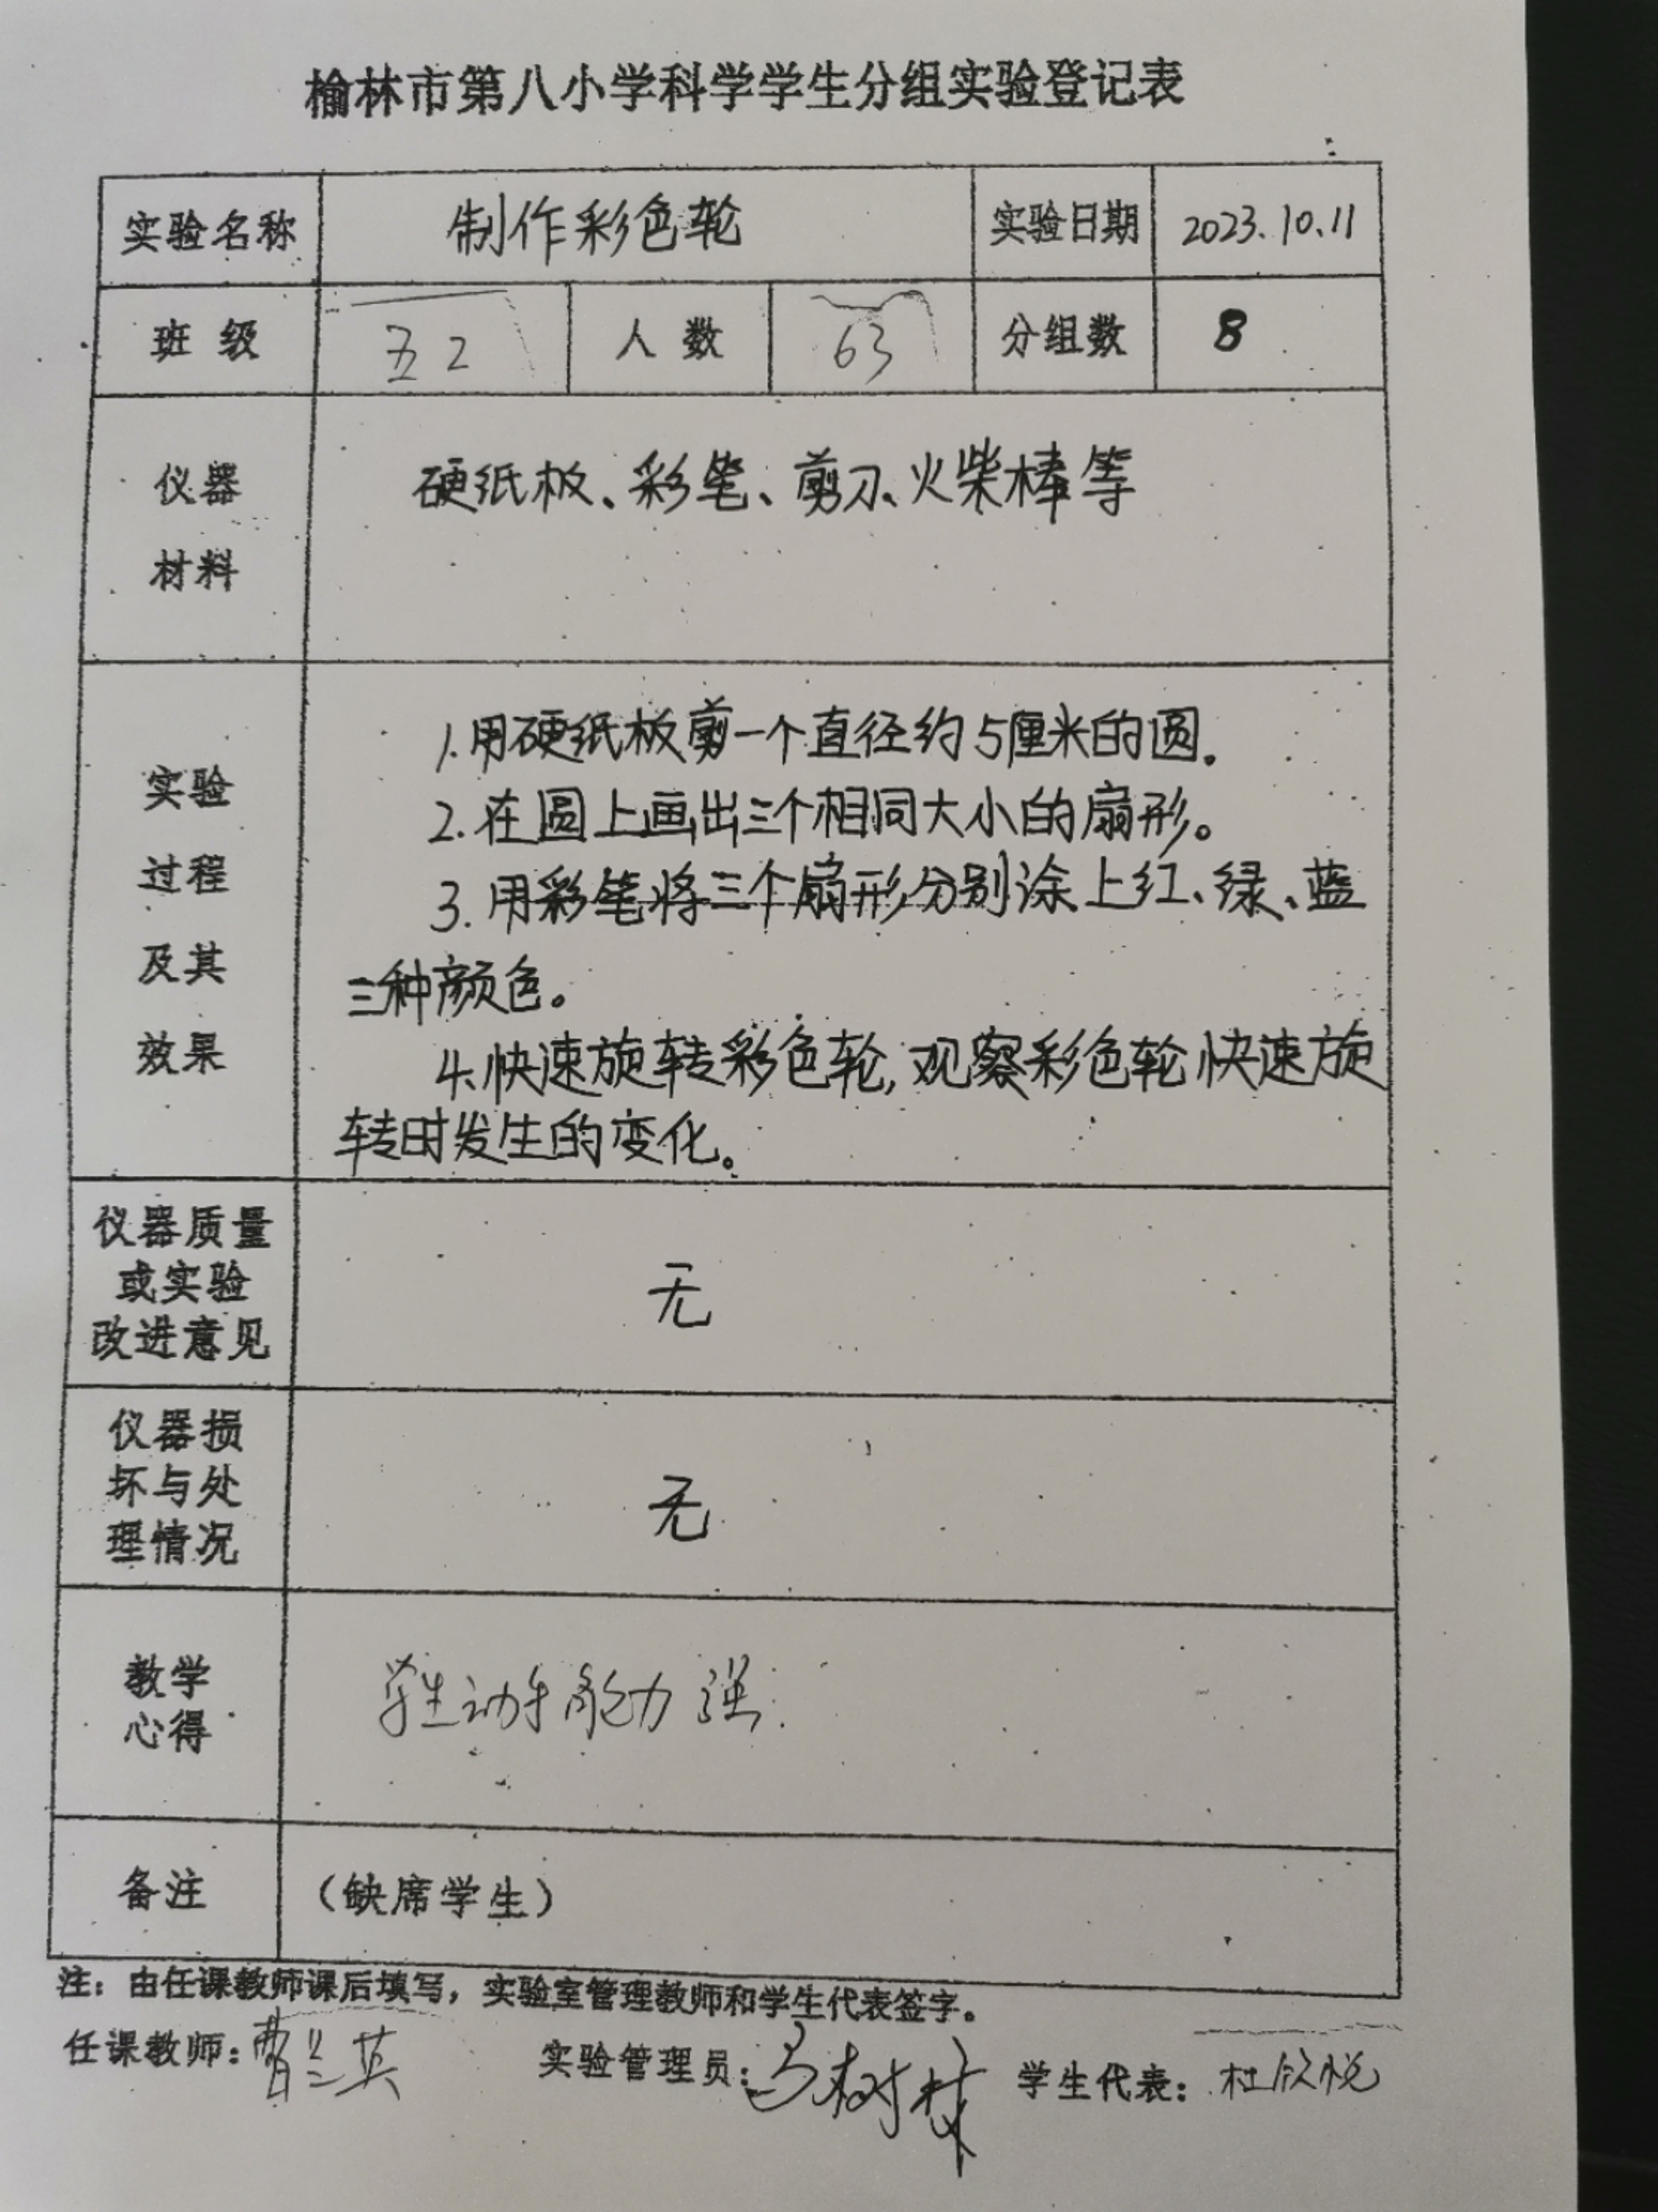 榆林市第八小学科学学生分组实验登记表
实验名称 制作彩色轮 实验日期 2023.10.11
班级 五2 人数 63 分组数 8
仪器
材料
硬纸板、彩笔、剪刀、火柴棒等
实验
过程
及其
效果
1.用硬纸板剪一个直径约5厘米的圆.
2.在圆上画出三个相同大小的扇形。
3.用彩笔将三个扇形分别涂上红、绿、蓝
三种颜色。
4.快速旋转彩色轮,观察彩色轮快速旋
转时发生的变化。
仪器质量
或实验
改进意见
无
仪器损
坏与处
理情况
无
教学
心得
学生动手能力强.
备注 (缺席学生)
注:由任课教师课后填写,实验室管理教师和学生代表签字。
任课教师:曹兰英 实验管理员:马树 学生代表:杜欣悦